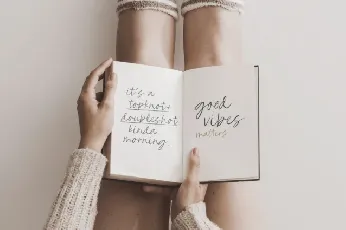 it's a
topknot +
doubleshot
kinda
morning
good
vibes
matters